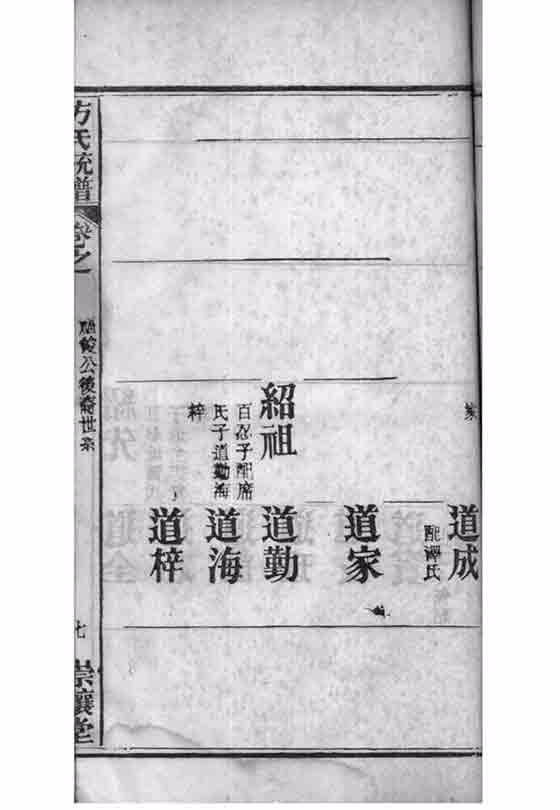 家
道成
配譚氏
道家
紹祖
百忍子配席
氏子道勤海
梓
道勤
道海
道梓
方氏統譜
卷之
公後裔世系
七
崇讓堂